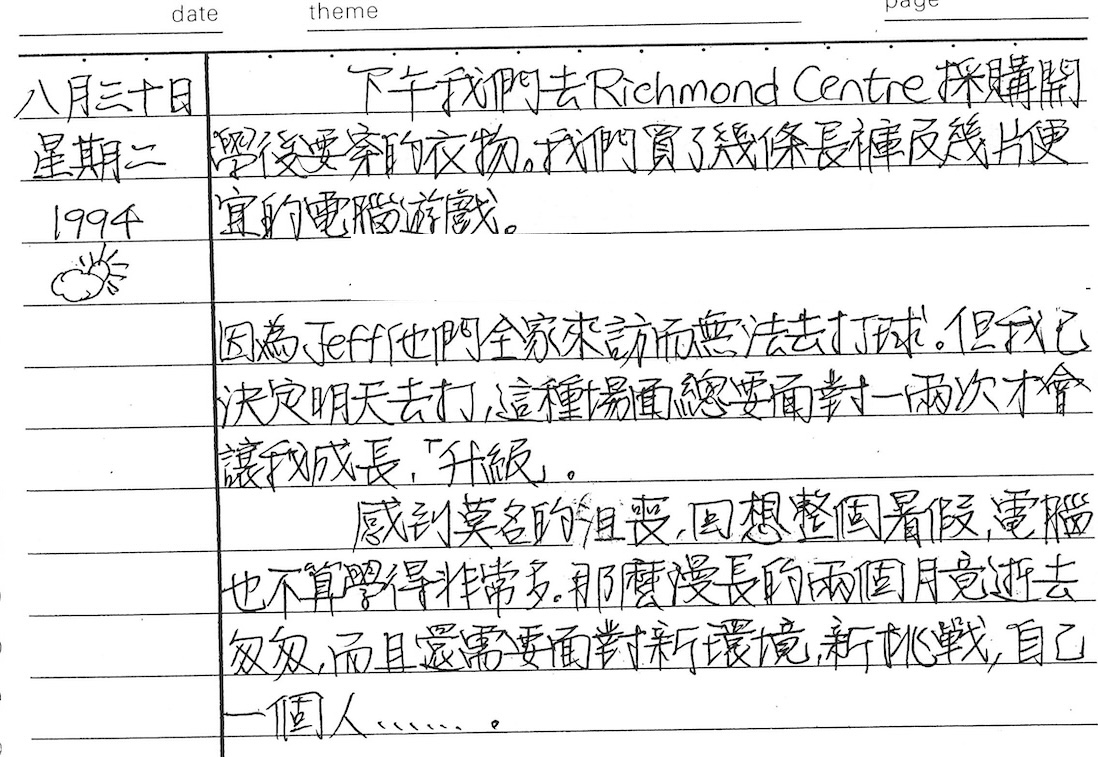 date theme page
八月三十日
星期二
1994
下午我們去Richmond Centre採購開
學後要穿的衣物。我們買了幾條長褲及幾片便
宜的電腦遊戲。
因為Jeff他們全家來訪而無法去打球。但我已
決定明天去打,這種場面總要面對一兩次才會
讓我成長,「升級」。
感到莫名的沮喪,回想整個暑假,電腦
也不算學得非常多.那麼漫長的兩個月竟逝去
匆匆,而且還需要面對新環境,新挑戰,自己
一個人.......。